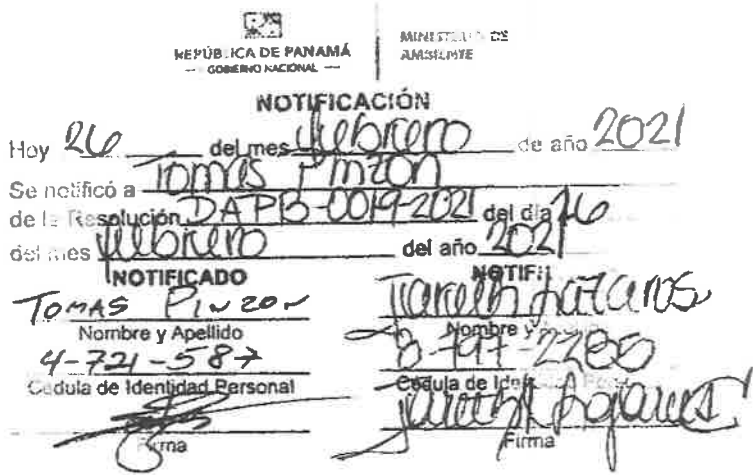 REPÚBLICA DE PANAMÁ
— GOBIERNO NACIONAL —
MINISTERIO DE
AMBIENTE
NOTIFICACIÓN
Hoy 26 del mes febrero de año 2021
Se notificó a Tomas Pinzon
de la Resolución DAPB-0019-2021 del día 26
del mes febrero del año 2021
NOTIFICADO
TOMAS PINZON
Nombre y Apellido
4-721-587
Cedula de Identidad Personal
Firma
NOTIFI
Nombre y
Cedula de
Firma